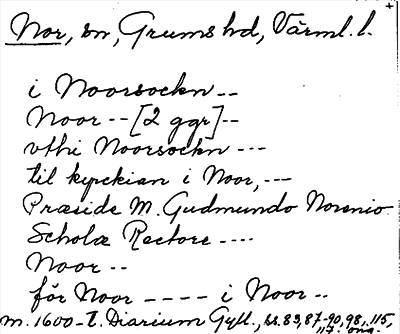 Nor, sn, Grums hd, Värml. l.
i Noorsockn --
Noor -- [2 ggr] --
vthi Noorsockn ---
til kyrckian i Noor, ---
Præside M. Gudmundo Norenio
Scholæ Rectore ----
Noor --
för Noor ---- i Noor --
m. 1600-t. Diarium Gyll., ss. 83, 87-90, 98, 115,
117. orig.